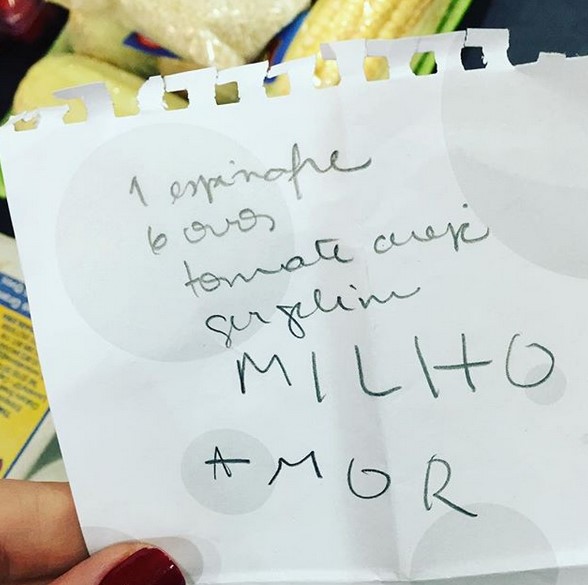 1 espinafre
6 ovos
tomate cereja
gergelim
MILHO
AMOR